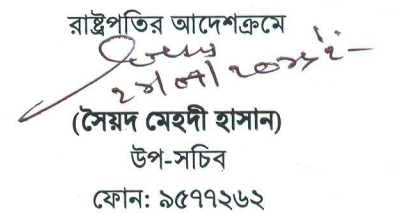 রাষ্ট্রপতির আদেশক্রমে
(সৈয়দ মেহদী হাসান)
উপ-সচিব
ফোন: ৯৫৭৭২৬২